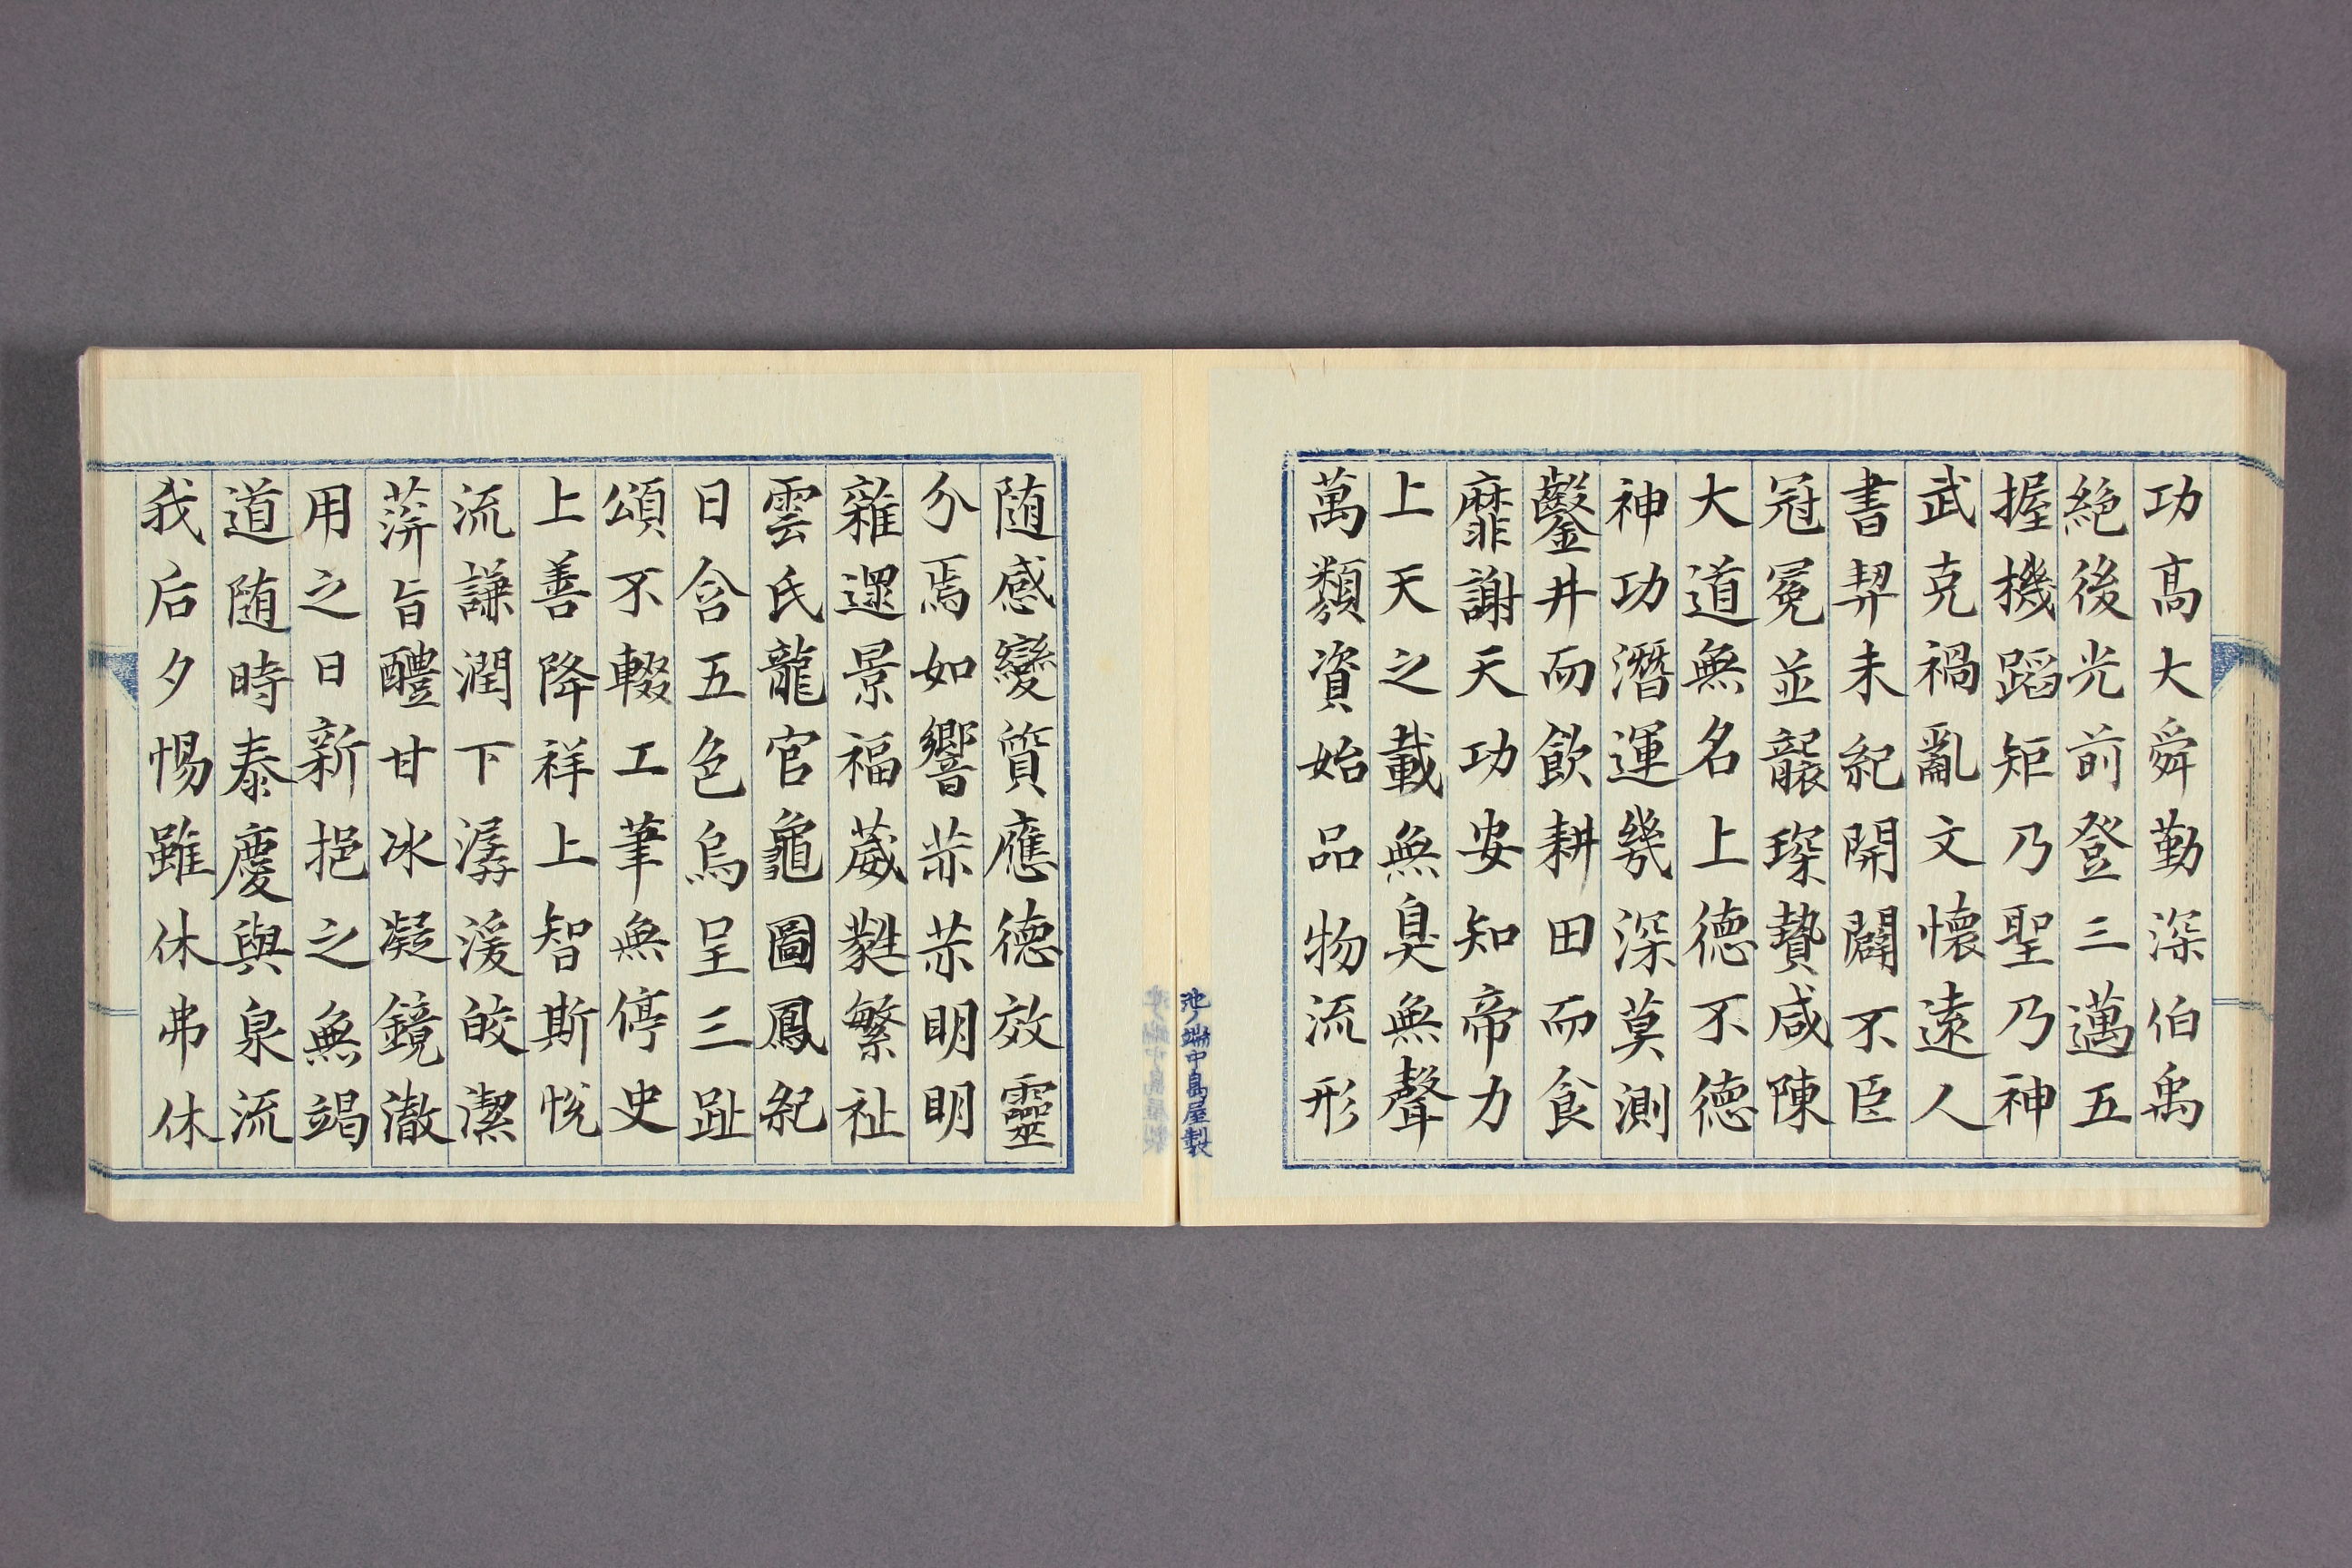 功高大舜勤深伯禹
絶後光前登三邁五
握機蹈矩乃聖乃神
武克禍亂文懷遠人
書契未紀開闢不臣
冠冕並襲琛贄咸陳
大道無名上德不德
神功潛運幾深莫測
鑿井而飲耕田而食
靡謝天功安知帝力
上天之載無臭無聲
萬類資始品物流形
随感變質應德效靈
介焉如響赫赫明明
雜遝景福葳蕤繁祉
雲氏龍官龜圖鳳紀
日含五色烏呈三趾
頌不輟工筆無停史
上善降祥上智斯悦
流謙潤下潺湲皎潔
蓱旨醴甘冰凝鏡澈
用之日新挹之無竭
道随時泰慶與泉流
我后夕惕雖休弗休
池ノ端中島屋製